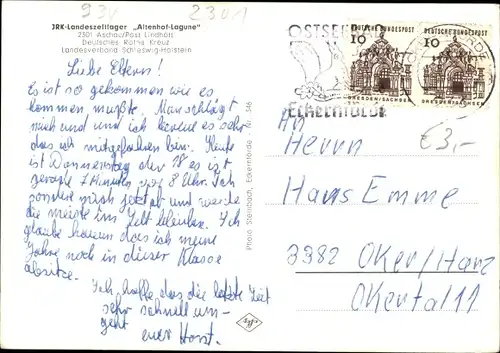 934
2301
JRK-Landeszeltlager „Altenhof-Lagune"
2301 Aschau/Post Lindhöft
Deutsches Rotes Kreuz
Landesverband Schleswig-Holstein
Liebe Eltern!
Es ist so gekommen wie es
kommen mußte. Man schlägt
mich und und ich bereue es sehr
das ich mitgefahren bin. Heute
ist Donnerstag der es ist
gerade 7 Minuten vor 8 Uhr. Ich
sondere mich jetzt ab und werde
die meiste im Zelt bleiben. Ich
glaube kaum das ich meine
Jahre noch in dieser Klasse
absitze.
Ich hoffe das die letzte Zeit
sehr schnell um-
geht euer Horst.
Photo Steinbach, Eckernförde Nr. 546
OSTSEEBAD
Eckernförde
DEUTSCHE BUNDESPOST
10
DRESDEN/SACHSEN
DEUTSCHE BUNDESPOST
10
DRESDEN/SACHSEN
An
Herrn
€3,-
Hans Emme
3382 Oker/Harz
Okertal 11